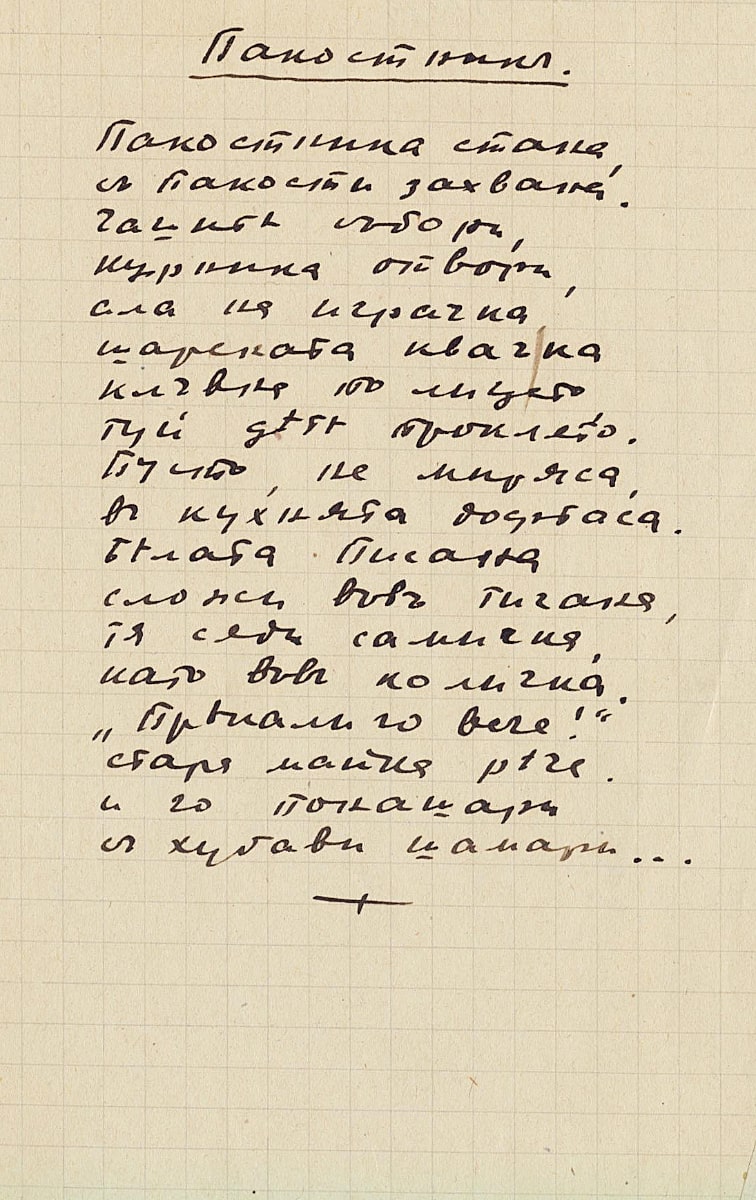 Пакостникъ.
Пакостника стана,
съ пакости захвана.
Чашитѣ събори,
курника отвори,
ала на играчка
шарената квачка
клъвна по лицето
туй дѣте проклето.
Пусто, не миряса,
въ кухнята
Бѣлата Писана
сложи вовъ тигана,
тя седи самичка,
като вовъ количка.
„Прѣкали го вече!“
стара майка рѣче.
и го понашари
съ хубави шамари...